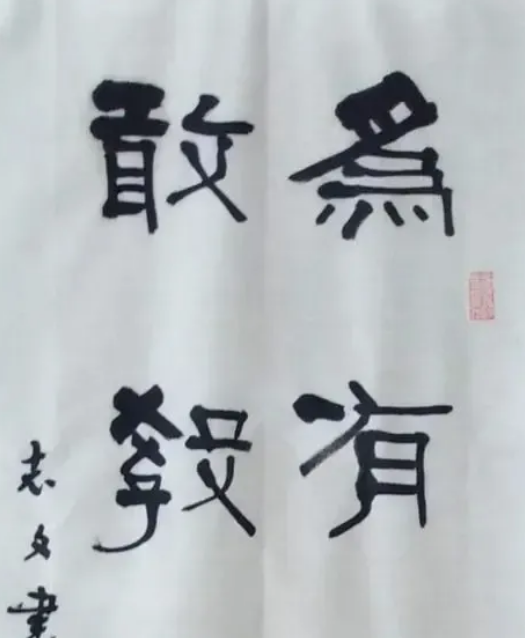 為有
敢教
志文書